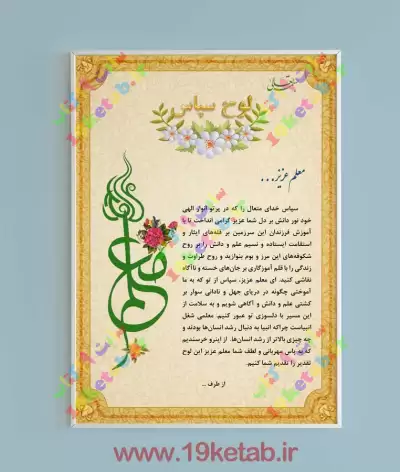 لوح سپاس
معلم عزیز...
سپاس خدای متعال را که در پرتو انوار الهی
خود نور دانش بر دل شما عزیز گرامی انداخت تا با
آموزش فرزندان این سرزمین بر قله‌های ایثار و
استقامت ایستاده و نسیم علم و دانش را بر روح
شکوفه‌های این مرز و بوم بنوازید و روح طراوت و
زندگی را با قلم آموزگاری بر جان‌های خسته و ناآگاه
نقاشی کنید. ای معلم عزیز، سپاس از تو که به ما
آموختی چگونه در دریای جهل و نادانی سوار بر
کشتی علم و دانش و آگاهی شویم و به سلامت از
این مسیر با دلسوزی تو عبور کنیم. معلمی شغل
انبیاست چراکه انبیا به دنبال رشد انسان‌ها بودند و
چه چیزی بالاتر از رشد انسان‌ها. از اینرو خرسندیم
که به پاس مهربانی و لطف شما معلم عزیز این لوح
تقدیر را تقدیم شما کنیم.
از طرف ..
معلم
www.19ketab.ir